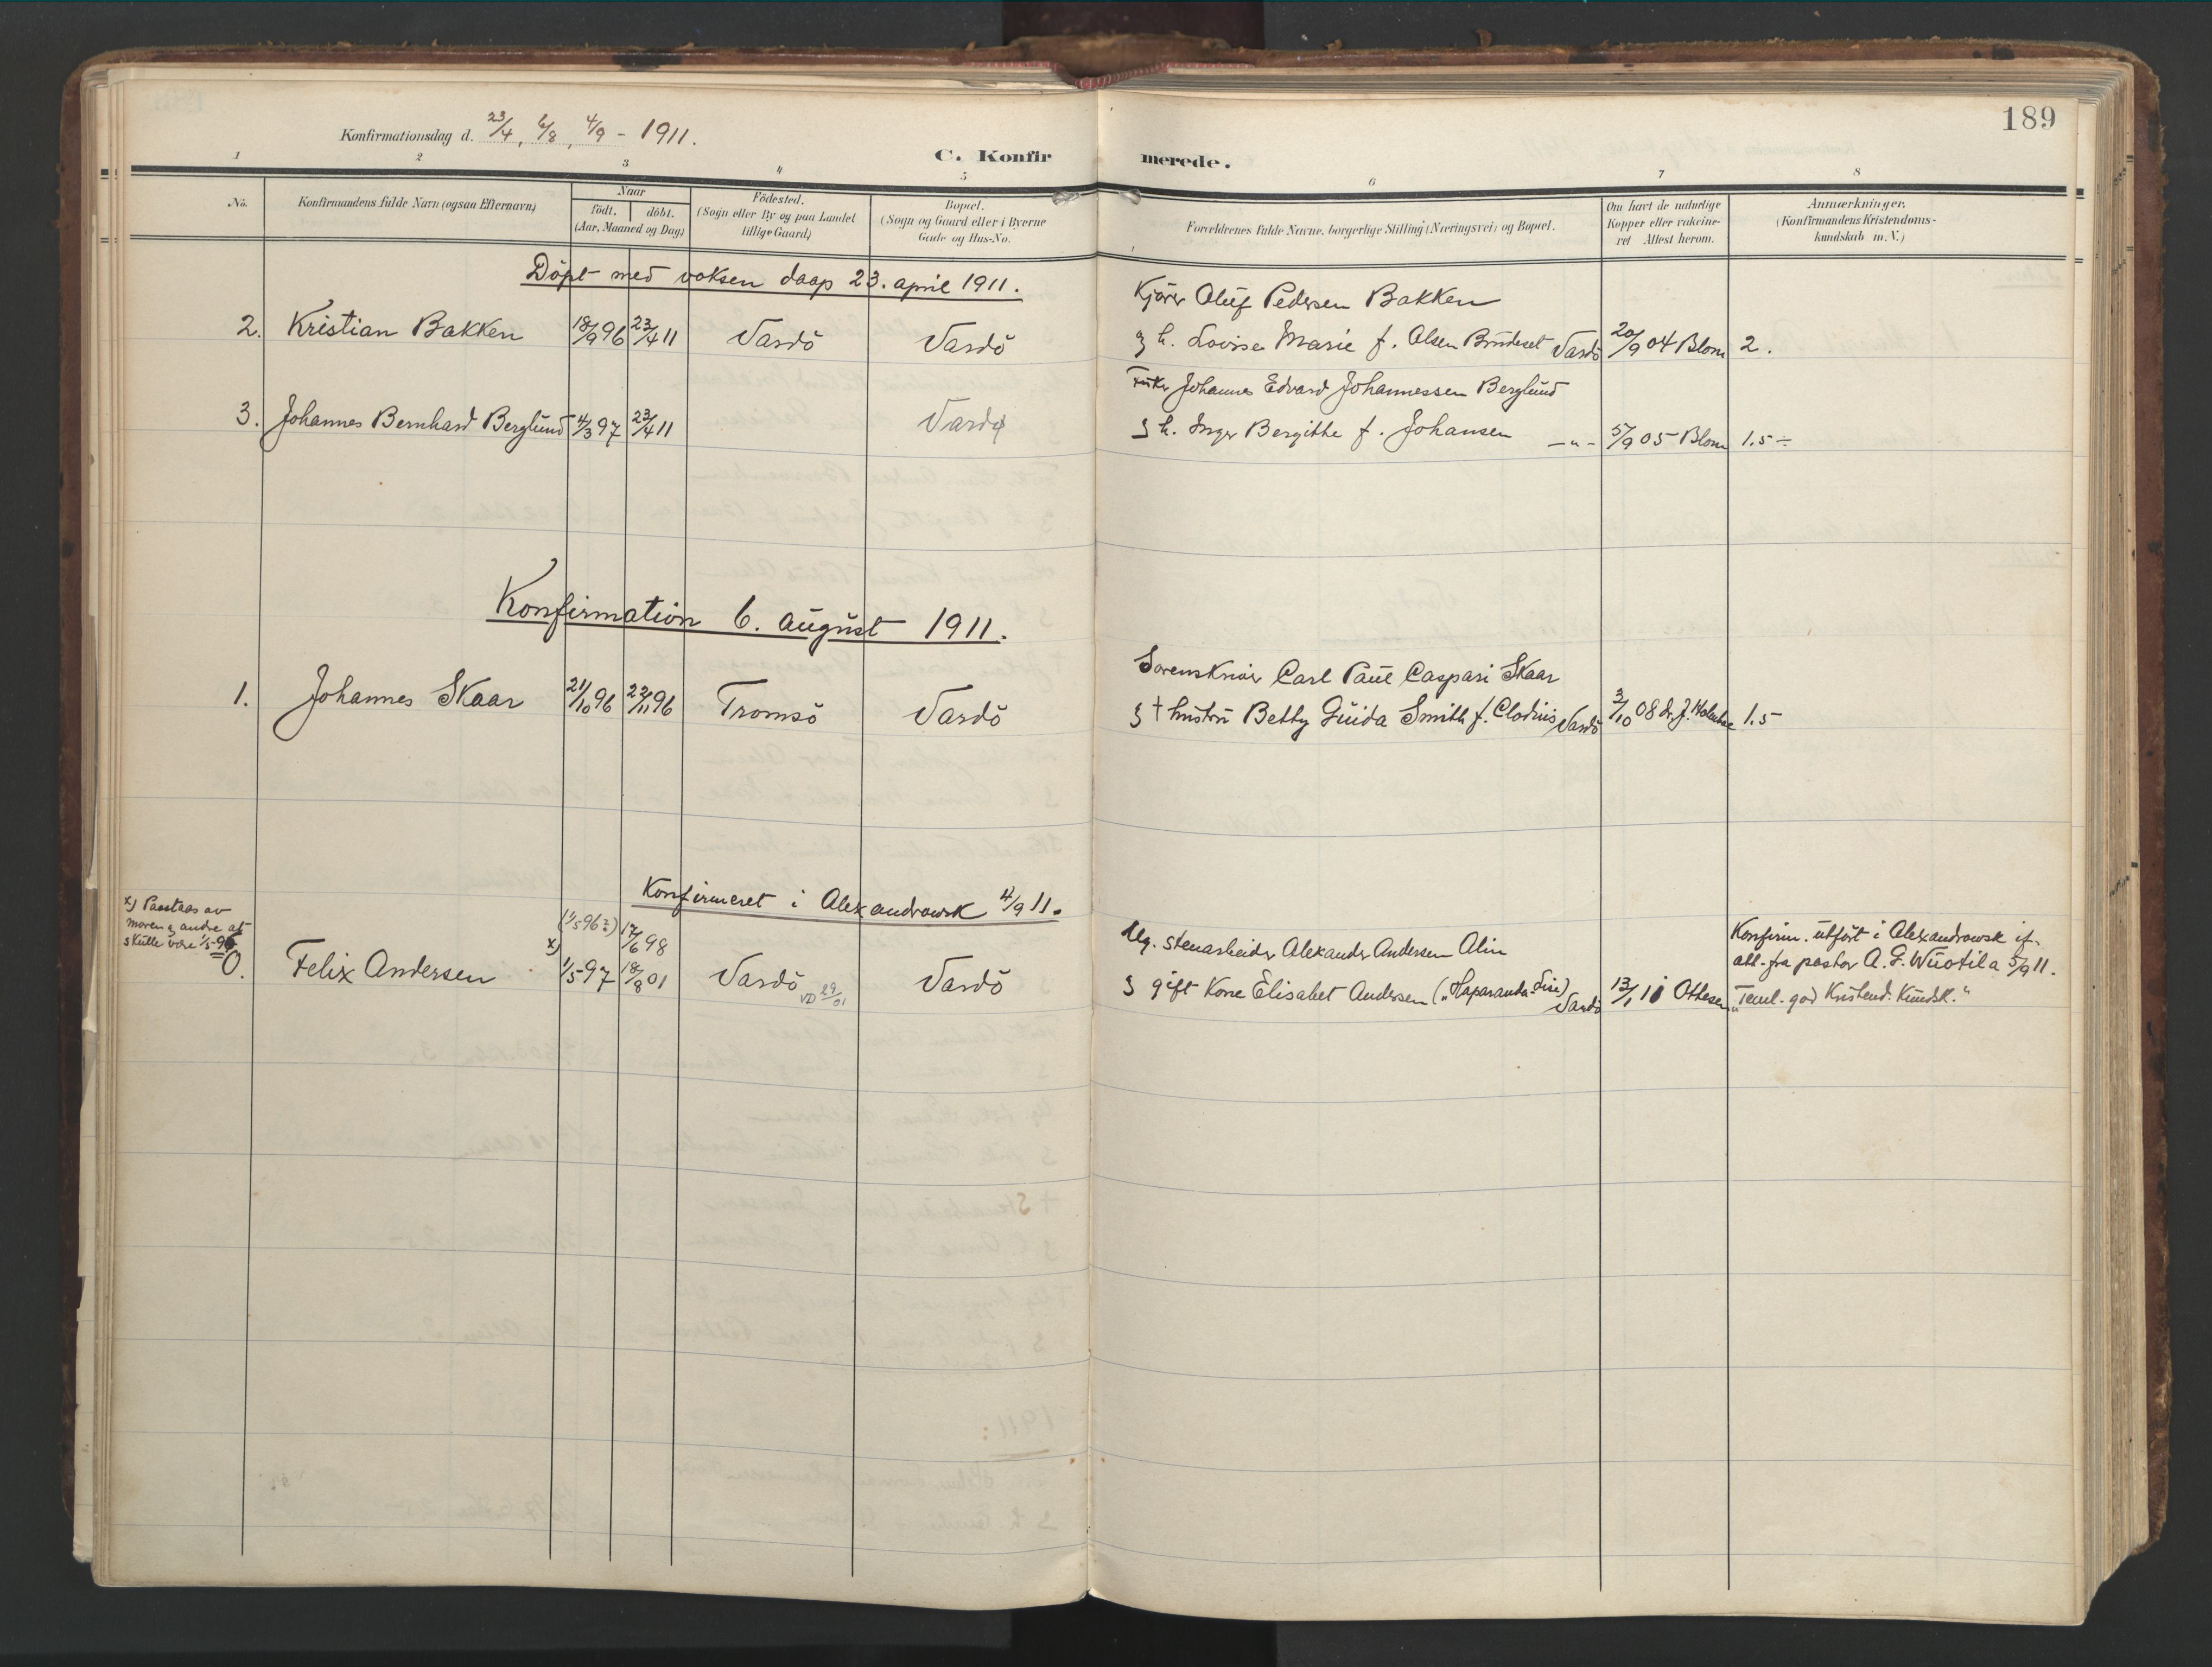 189
Konfirmationsdag d. 23/4, 6/8, 4/9 - 1911.
C. Konfirmerede.
1 2 3 4 5 6 7 8
No.
Konfirmandens fulde Navn (ogsaa Efternavn)
Naar
födt. döbt.
(Aar, Maaned og Dag)
Födested.
(Sogn eller By og paa Landet
tillige Gaard)
Bopæl.
(Sogn og Gaard eller i Byerne
Gade og Hus-No.
Forældrenes fulde Navne, borgerlige Stilling (Næringsvei) og Bopæl.
Om havt de naturlige
Kopper eller vakcine-
ret Attest herom.
Anmærkninger.
(Konfirmandens Kristendoms-
kundskab m. V.)
Döpt med voksen daap 23. april 1911.
Kjörer Oluf Pedersen Bakken
2. Kristian Bakken 18/9 96 23/4 11 Vardö Vardö
h. Lovise Marie f. Olsen Vardö 20/9 04 Blom 2.
Johannes Edvard Johannessen Berglund
3. Johannes Bernhard Berglund 4/3 97 23/4 11 Vardö
h. Inger Bergithe f. Johansen -"- 5/9 05 Blom 1.5 ÷
Konfirmation 6. august 1911.
Sorenskriver Carl Paul Caspari Skaar
1. Johannes Skaar 21/10 96 22/11 96 Tromsö Vardö
† hustru Betty Guida Smith f. Clodius Vardö 3/10 08 dr. J. 1.5
Konfirmeret i Alexandrowsk 4/9 11.
x) Paastaas av
moren & andre at
skulle være 1/5-96
(1/5 96?) 17/6 98
Ug. stenarbeider Alexander Andersen Alin
Konfirm. utført i Alexandrowsk if.
att. fra pastor A. G. Wuotila 5/9 11.
0. Felix Andersen x) 1/5 97 18/8 01 Vardö VD 29/01 Vardö
gift Kone Elisabet Andersen ("Haparanda-Lise) Vardö 13/1 11 Ottesen
"Teml. god Kristend. Kundsk."